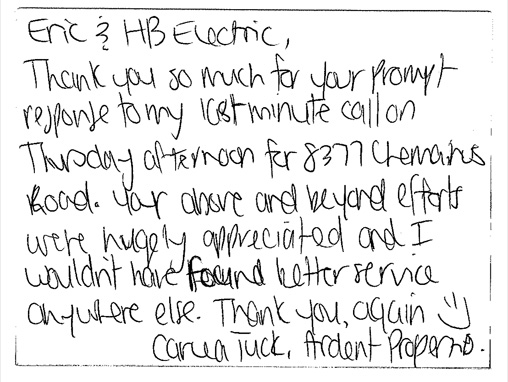 Eric & HB Electric,
Thank you so much for your prompt
response to my last minute call on
Thursday afternoon for 8377 Chemainus
Road. Your above and beyond efforts
were hugely appreciated and I
wouldn't have found better service
anywhere else. Thank you, again
Tuck, Ardent Properties.